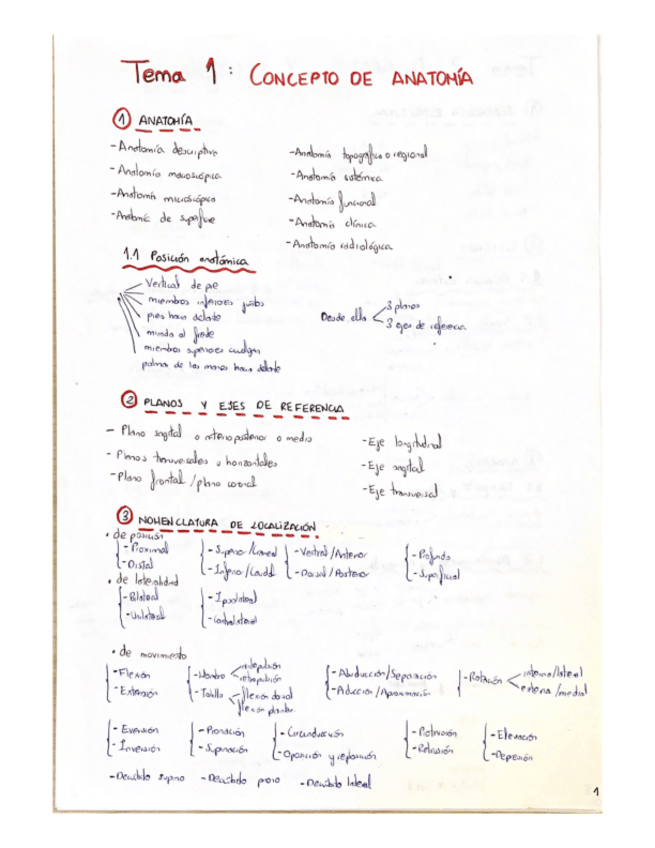 Tema 1: CONCEPTO DE ANATOMÍA
① ANATOMÍA
- Anatomía descriptiva
- Anatomía macroscópica
- Anatomía microscópica
- Anatomía de superficie
- Anatomía topográfica o regional
- Anatomía sistémica
- Anatomía funcional
- Anatomía clínica
- Anatomía radiológica
1.1 Posición anatómica
Vertical de pie
miembros inferiores juntos
pies hacia delante
mirada al frente
miembros superiores cuelgan
palma de las manos hacia delante
Desde ella
3 planos
3 ejes de referencia
② PLANOS Y EJES DE REFERENCIA
- Plano sagital o anteroposterior o medio
- Planos transversales u horizontales
- Plano frontal / plano coronal
- Eje longitudinal
- Eje sagital
- Eje transversal
③ NOMENCLATURA DE LOCALIZACIÓN
• de posición
- Proximal
- Distal
- Superior / Craneal
- Inferior / Caudal
- Ventral / Anterior
- Dorsal / Posterior
- Profundo
- Superficial
• de lateralidad
- Bilateral
- Unilateral
- Ipsolateral
- Contralateral
• de movimiento
- Flexión
- Extensión
- Hombro
antepulsión
retropulsión
- Tobillo
flexión dorsal
flexión plantar
- Abducción / Separación
- Aducción / Aproximación
- Rotación
interna / lateral
externa / medial
- Eversión
- Inversión
- Pronación
- Supinación
- Circunducción
- Oposición y reposición
- Protrusión
- Retrusión
- Elevación
- Depresión
- Decúbito supino - Decúbito prono - Decúbito lateral
1